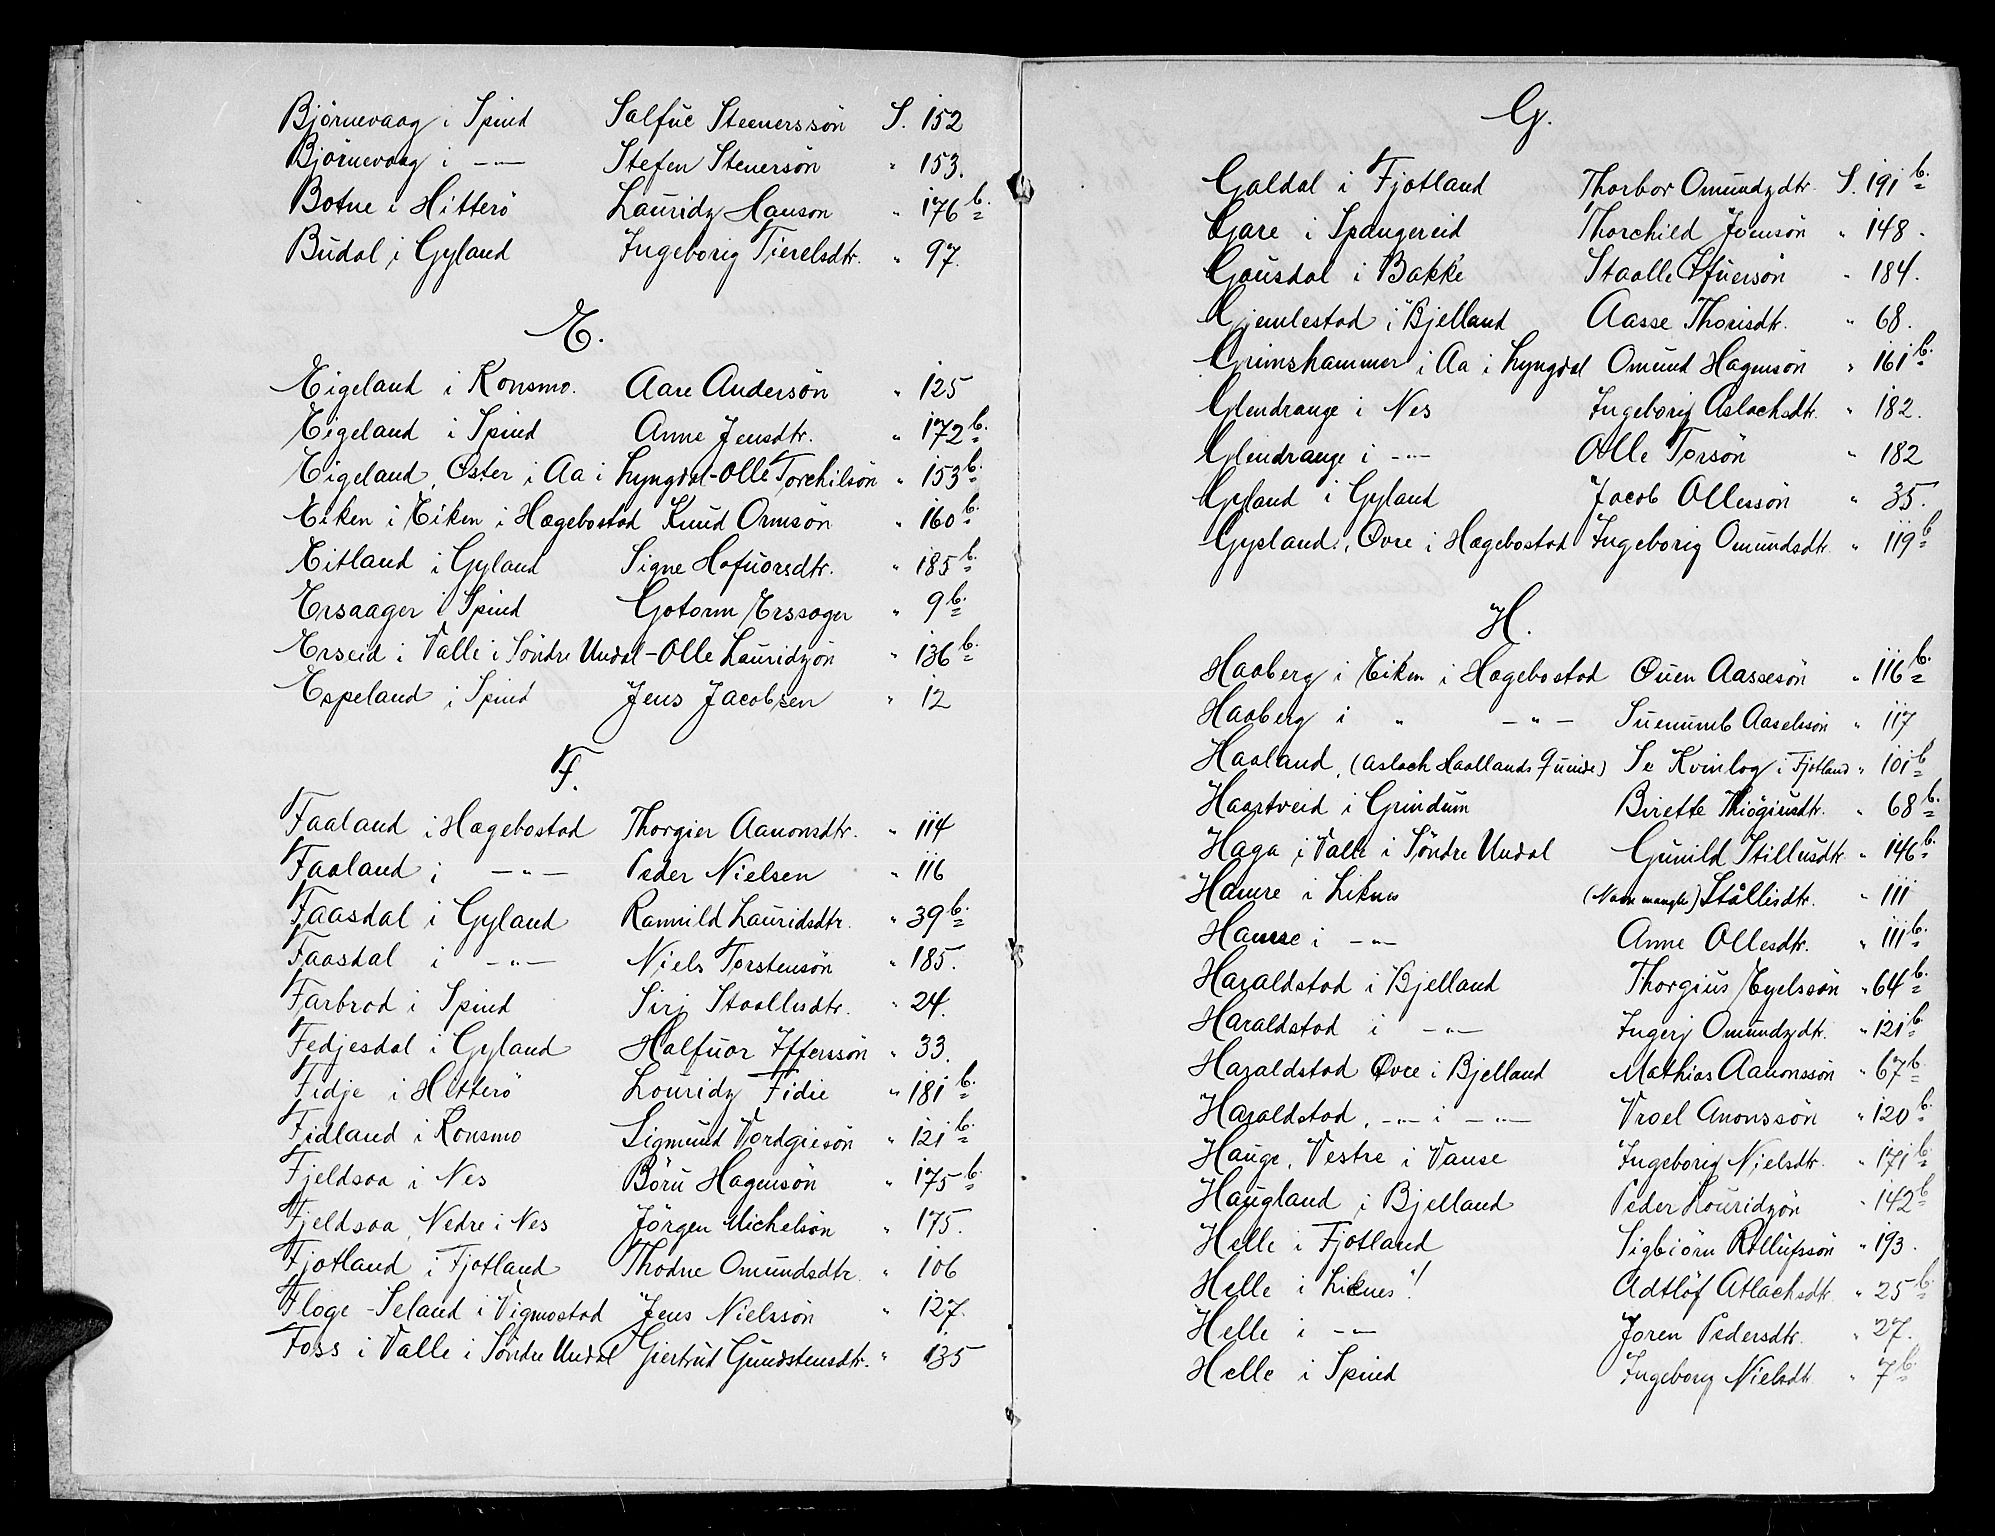 Bjørnevaag i Spind Salfue Steenerssön S. 152
Bjørnevaag i -"- Stefen Stenersön " 153.
Botne i Hitterö Lauridz Hanson " 176 b.
Budal i Gyland Ingeborig Tierelsdtr. " 97.
E.
Eigeland i Konsmo. Aare Andersön " 125
Eigeland i Spind Anne Jensdtr. " 172 b.
Eigeland, Øster i Aa i Lyngdal - Olle Torchilsön " 153 b.
Eiken i Eiken i Hægebostad Knud Ormsön " 160 b.
Eitland i Gyland Signe Hofuorsdtr. " 185 b.
Ersaager i Spind Gotorm Erssager " 9 b.
Erseid i Valle i Söndre Undal - Olle Lauridzön " 136 b.
Espeland i Spind Jens Jacobsen " 12
F.
Faaland i Hægebostad Thorgier Aanonsdtr. " 114
Faaland i -"- Peder Nielsen " 116
Faasdal i Gyland Rannild Lauridsdtr. " 39 b.
Faasdal i -"- Niels Torstensön " 185.
Farbrod i Spind Siri Staallesdtr. " 24.
Fedjesdal i Gyland Halfuor Iffersson " 33.
Fidje i Hitterö Louridz Fidie " 181 b.
Fidland i Konsmo Sigmund Tordgiesön " 121 b.
Fjeldsaa i Nes Böru Hagensön " 175 b.
Fjeldsaa, Nedre i Nes Jørgen Michelsön " 175.
Fjotland i Fjotland Thodne Omundsdtr. " 106
Floge - Seland i Vigmostad Jens Nielssön " 127.
Foss i Valle i Söndre Undal Giertrud Gundstensdtr. " 135
G.
Galdal i Fjotland Thorbor Omundzdtr. S. 191 b.
Gare i Spangereid Thorchild Joensön " 148.
Gausdal i Bakke Staalle Iffuersön " 184.
Gjemlestad i Bjelland Aasse Thorisdtr. " 68.
Grimshammer i Aa i Lyngdal Omund Hagensön " 161 b.
Glendrange i Nes Ingeborig Aslachsdtr. " 182.
Glendrange i -"- Olle Torsön " 182
Gyland i Gyland Jacob Ollessön " 35.
Gysland, Øvre i Hægebostad Ingeborig Omundsdtr. " 119 b
H.
Haaberg i Eiken i Hægebostad Øuen Aassesön " 116 b.
Haaberg i " -"- Suenumb Aaselssön " 117
Haaland, (Aslach Haallands Quinde) Se Kvinlog i Fjotland " 101 b
Haartveid i Grindum Birette Thiögiusdtr. " 68 b.
Haga i Valle i Söndre Undal Gunild Stillusdtr. " 146 b.
Hamre i Liknes (Navn mangler) Ställisdtr. " 111
Hamre i -"- Anne Ollesdtr. " 111 b.
Haraldstad i Bjelland Thorgius Eyelssön " 64 b.
Haraldstad i -"- Ingerj Omundzdtr. " 121 b.
Haraldstad Øvre i Bjelland Mathias Aanonssön " 67 b
Haraldstad, -"- i -"- Vroel Anonssön " 120 b.
Hauge, Vestre i Vanse Ingeborig Nielsdtr. " 171 b.
Haugland i Bjelland Peder Louridzön " 142 b
Helle i Fjotland Sigbiörn Rollufssön " 193.
Helle i Liknes! Adtlöf Atlachsdtr. " 25 b.
Helle i -"- Joren Pedersdtr. " 27.
Helle i Spind Ingeborg Nielsdtr. " 7 b.